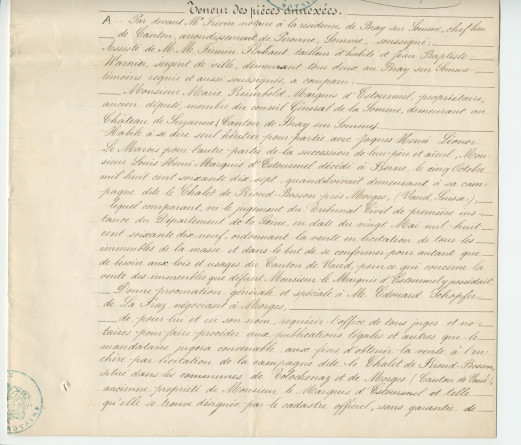 Teneur des pièces annexées.
A. Par devant Me Friern notaire à la résidence de Bray sur Somme, chef lieu
de Canton, arrondissement de Péronne, Somme, soussigné.
Assisté de M. M. Firmin Flahaut tailleur d'habits et Jean Baptiste
Warnier, sergent de ville, demeurant tous deux au Bray sur Somme
témoins requis et aussi soussignés, a comparu:
Monsieur Marie Reimbold Marquis d'Estourmel, propriétaire,
ancien député, membre du conseil Général de la Somme, demeurant au
Château de Suzanne (Canton de Bray sur Somme).
Habile à se dire seul héritier pour partie avec Jaques Henri Léonor
Le Marois pour l'autre partie de la succession de leur père et aïeul, Mon-
sieur Louis Henri Marquis d'Estourmel décédé à Berne, le cinq Octobre
mil huit cent soixante dix sept, quand il vivait demeurant à sa cam-
pagne, dite le Chalet de Riond-Bosson près Morges, (Vaud, Suisse),
lequel comparant, vu le jugement du Tribunal Civil de première ins-
tance du Département de la Seine, en date du vingt Mai mil huit
cent soixante dix neuf, ordonnant la vente en licitation de tous les
immeubles de la masse et dans le but de se conformer pour autant que
de besoin aux lois et usages du Canton de Vaud, pour ce qui concerne la
vente des immeubles que défunt Monsieur le Marquis d'Estourmel y possédait
Donne procuration générale et spéciale à M. Edouard Schopfer
de La Praz négociant à Morges,
de, pour lui et en son nom, requérir l'office de tous juges et no-
taires pour faire procéder aux publications légales et autres que le
mandataire jugera convenable aux fins d'obtenir la vente à l'en-
chère par licitation de la campagne dite le Chalet de Riond-Bosson,
située dans les communes de Tolochenaz et de Morges (Canton de Vaud),
ancienne propriété de Monsieur le Marquis d'Estourmel et telle
qu'elle se trouve désignée par le cadastre officiel, sans garantie de
NOTAIRE